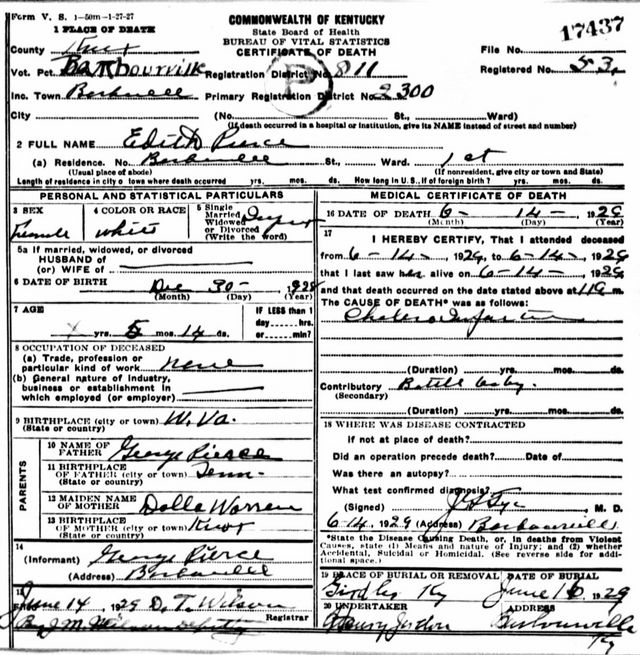 Form V. S. 1-50m-1-27-27
COMMONWEALTH OF KENTUCKY
State Board of Health
BUREAU OF VITAL STATISTICS
CERTIFICATE OF DEATH
17437
1 PLACE OF DEATH
County Knox
File No.
Vot. Pct. Barbourville Registration District No. 811
Registered No. 53
Inc. Town Primary Registration District No. 2300
P
City (No. St., Ward)
(If death occurred in a hospital or institution, give its NAME instead of street and number)
2 FULL NAME Edith Pierce
(a) Residence. No. St., Ward. 1st
(Usual place of abode) (If nonresident, give city or town and State)
Length of residence in city or town where death occurred yrs. mos. ds. How long in U.S., if of foreign birth? yrs. mos. ds.
PERSONAL AND STATISTICAL PARTICULARS
3 SEX Female
4 COLOR OR RACE White
5 Single Married Widowed or Divorced (Write the word)
5a If married, widowed, or divorced
HUSBAND of
(or) WIFE of
6 DATE OF BIRTH Dec 30- 1928
(Month) (Day) (Year)
7 AGE yrs. 5 mos. 14 ds.
IF LESS than 1 day hrs. or min?
8 OCCUPATION OF DECEASED
(a) Trade, profession or particular kind of work none
(b) General nature of industry, business or establishment in which employed (or employer)
9 BIRTHPLACE (city or town) W. Va.
(State or country)
PARENTS
10 NAME OF FATHER George Pierce
11 BIRTHPLACE OF FATHER (city or town) Tenn-
(State or country)
12 MAIDEN NAME OF MOTHER Warren
13 BIRTHPLACE OF MOTHER (city or town) Knox
(State or country)
14
(Informant) George Pierce
(Address)
15
Filed June 14, 1929 D. T. Wilson
Registrar
By J. M. Wilson
MEDICAL CERTIFICATE OF DEATH
16 DATE OF DEATH 6- 14- 1929
(Month) (Day) (Year)
17
I HEREBY CERTIFY, That I attended deceased
from 6-14-, 1929, to 6-14-, 1929
that I last saw her alive on 6-14-, 1929
and that death occurred on the date stated above at m.
The CAUSE OF DEATH* was as follows:
Cholera Infantum
(Duration) yrs. mos. ds.
Contributory
(Secondary)
(Duration) yrs. mos. ds.
18 WHERE WAS DISEASE CONTRACTED
if not at place of death?
Did an operation precede death? Date of
Was there an autopsy?
What test confirmed diagnosis?
(Signed) M. D.
6-14, 1929 (Address) Barbourville
*State the Disease Causing Death, or, in deaths from Violent
Causes, state (1) Means and nature of Injury; and (2) whether
Accidental, Suicidal or Homicidal. (See reverse side for addi-
tional space.)
19 PLACE OF BURIAL OR REMOVAL Girdler Ky
DATE OF BURIAL June 16 1929
20 UNDERTAKER
ADDRESS Barbourville
Ky